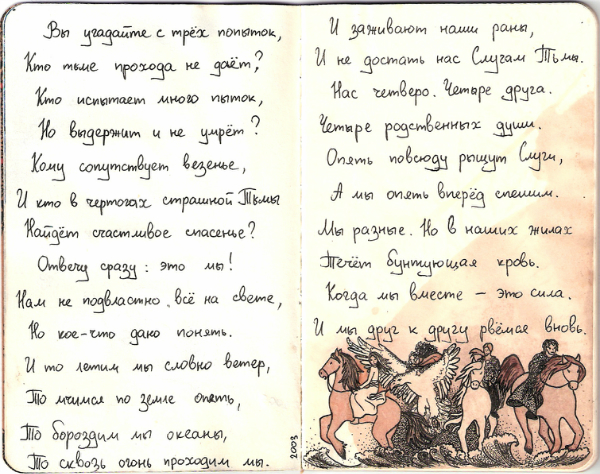 Вы угадайте с трёх попыток,
Кто тьме прохода не даёт?
Кто испытает много пыток,
Но выдержит и не умрёт?
Кому сопутствует везенье,
И кто в чертогах страшной Тьмы
Найдёт счастливое спасенье?
Отвечу сразу: это мы!
Нам не подвластно всё на свете,
Но кое-что дано понять.
И то летим мы словно ветер,
То мчимся по земле опять,
То бороздим мы океаны,
То сквозь огонь проходим мы.
2003
И заживают наши раны,
И не достать нас Слугам Тьмы.
Нас четверо. Четыре друга.
Четыре родственных души.
Опять повсюду рыщут Слуги,
А мы опять вперёд спешим.
Мы разные. Но в наших жилах
Течёт бунтующая кровь.
Когда мы вместе – это сила.
И мы друг к другу рвёмся вновь.